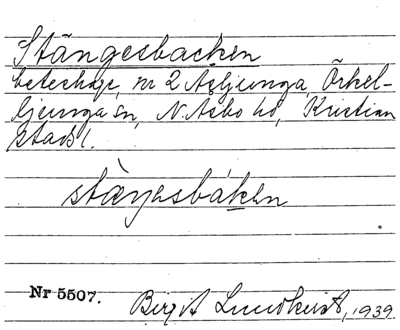 Stängesbacken
beteshage, nr 2 Åsljunga, Örkel-
ljunga sn, N. Åsbo hd, Kristian
stads l.
stäŋesbáken
Nr 5507.
Birgit Lundkvist, 1939.